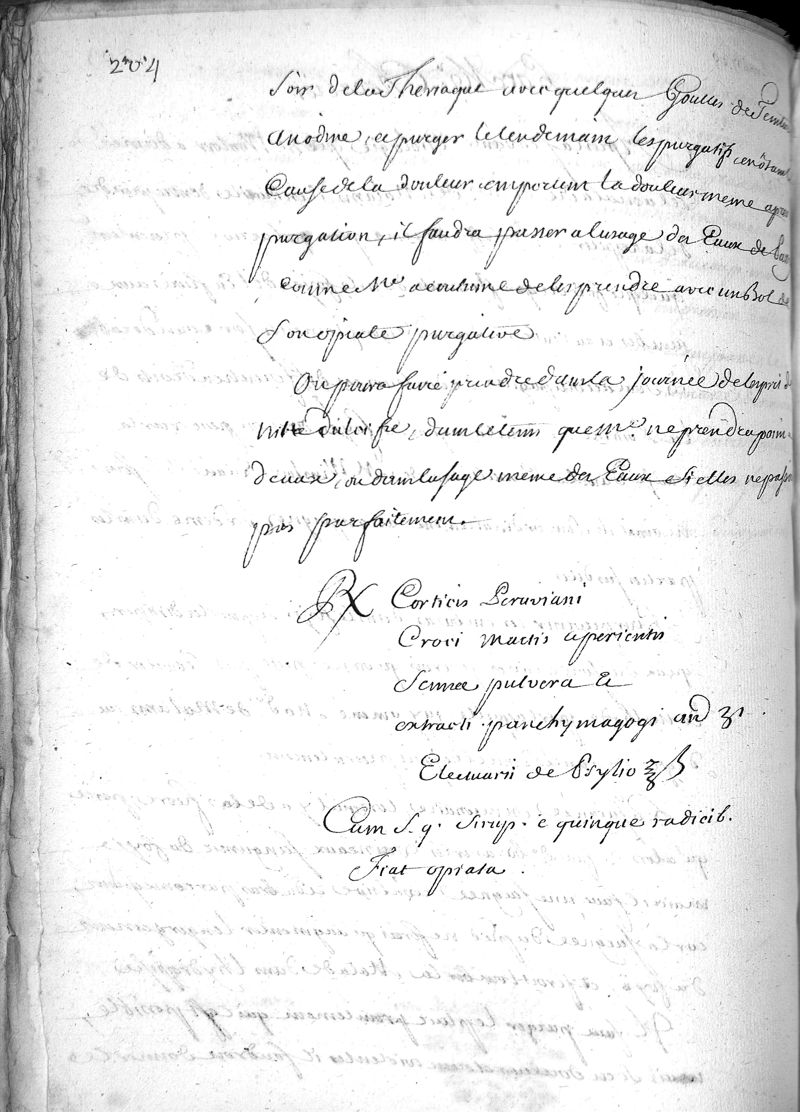 204
Soir de la Theriaque avec quelques Goutes de
anodine, et purger le lendemain les purgatifs en ôtant
Cause de la douleur emportent la douleur meme apres
purgation, il faudra passer a lusage des Eaux de
comme Mr. a coutume de les prendre avec un Bol de
Son opiate purgative
On poura faire prendre dans la journée de lesprit de
nitre dulcifié, dans le tems que mr. ne prendra point
deaux, ou dans lusage meme des Eaux Si elles ne passent
pas parfaitement.
Rx Corticis Peruviani
Croci martis aperientis
Sennae pulvera &
extracti panchymagogi and ʒ1
Electuarii de Psylio ℥ß
Cum S. q. Sirup. e quinque radicib.
Fiat opiata.